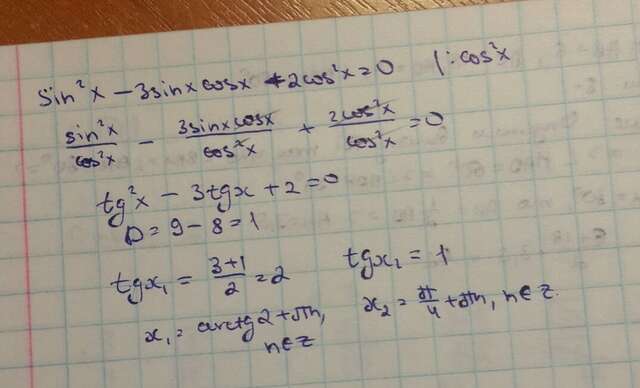 sin²x − 3sinx cosx + 2cos²x = 0 |:cos²x
sin²x/cos²x − 3sinx cosx/cos²x + 2cos²x/cos²x = 0
tg²x − 3tgx + 2 = 0
D = 9 − 8 = 1
tgx₁ = (3+1)/2 = 2 tgx₂ = 1
x₁ = arctg2 + πn, n∈z x₂ = π/4 + πn, n∈z.